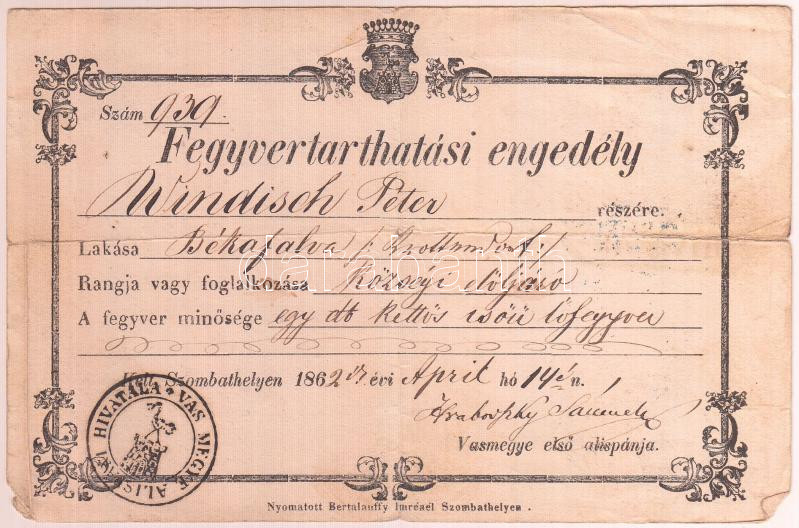 Szám 939.
Fegyvertarthatási engedély
Windisch Péter részére.
Lakása Békafalva
Rangja vagy foglalkozása Községi elöljáró
A fegyver minősége egy db kettős csőü lőfegyver
Kelt Szombathelyen 1862 ik évi April hó 14én.
Vasmegye első alispánja.
VAS MEGYE ALISPÁNI HIVATALA
Nyomatott Bertalanffy Imrénél Szombathelyen.
darabanth